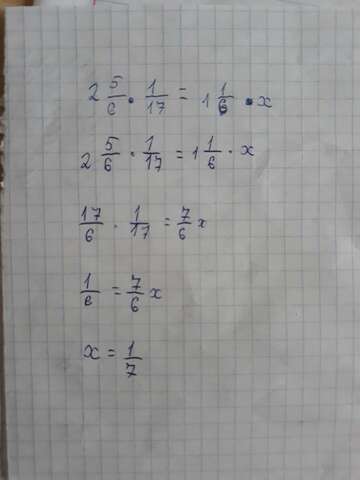 2 5/6 · 1/17 = 1 1/6 · x
2 5/6 · 1/17 = 1 1/6 · x
17/6 · 1/17 = 7/6 x
1/6 = 7/6 x
x = 1/7